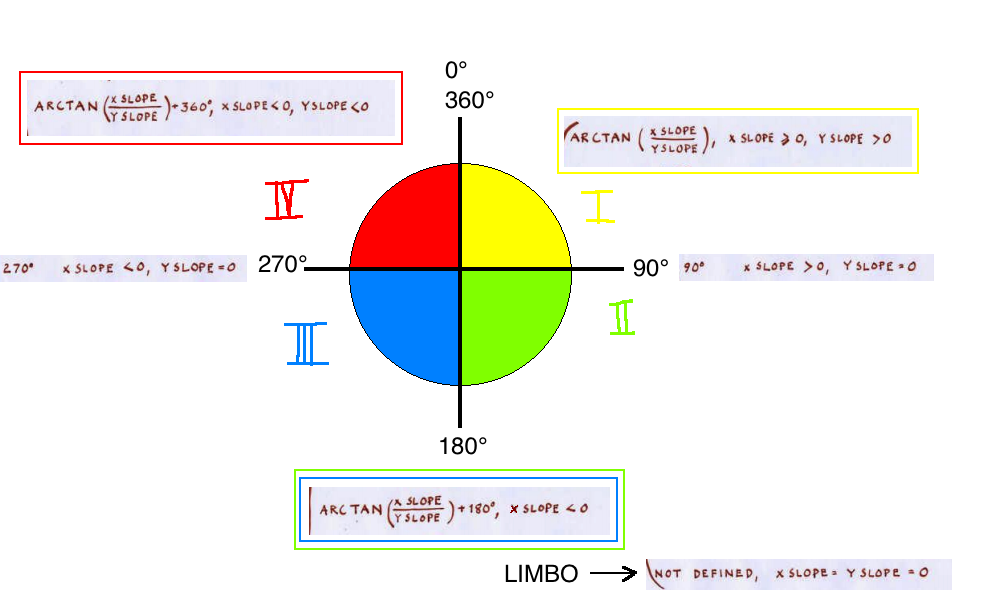 0°
360°
ARCTAN (X SLOPE / Y SLOPE) + 360°, X SLOPE < 0, Y SLOPE < 0
ARCTAN (X SLOPE / Y SLOPE), X SLOPE ⩾ 0, Y SLOPE > 0
IV
I
270° X SLOPE < 0, Y SLOPE = 0
270°
90°
90° X SLOPE > 0, Y SLOPE = 0
III
II
180°
ARCTAN (X SLOPE / Y SLOPE) + 180°, X SLOPE < 0
LIMBO
NOT DEFINED, X SLOPE = Y SLOPE = 0